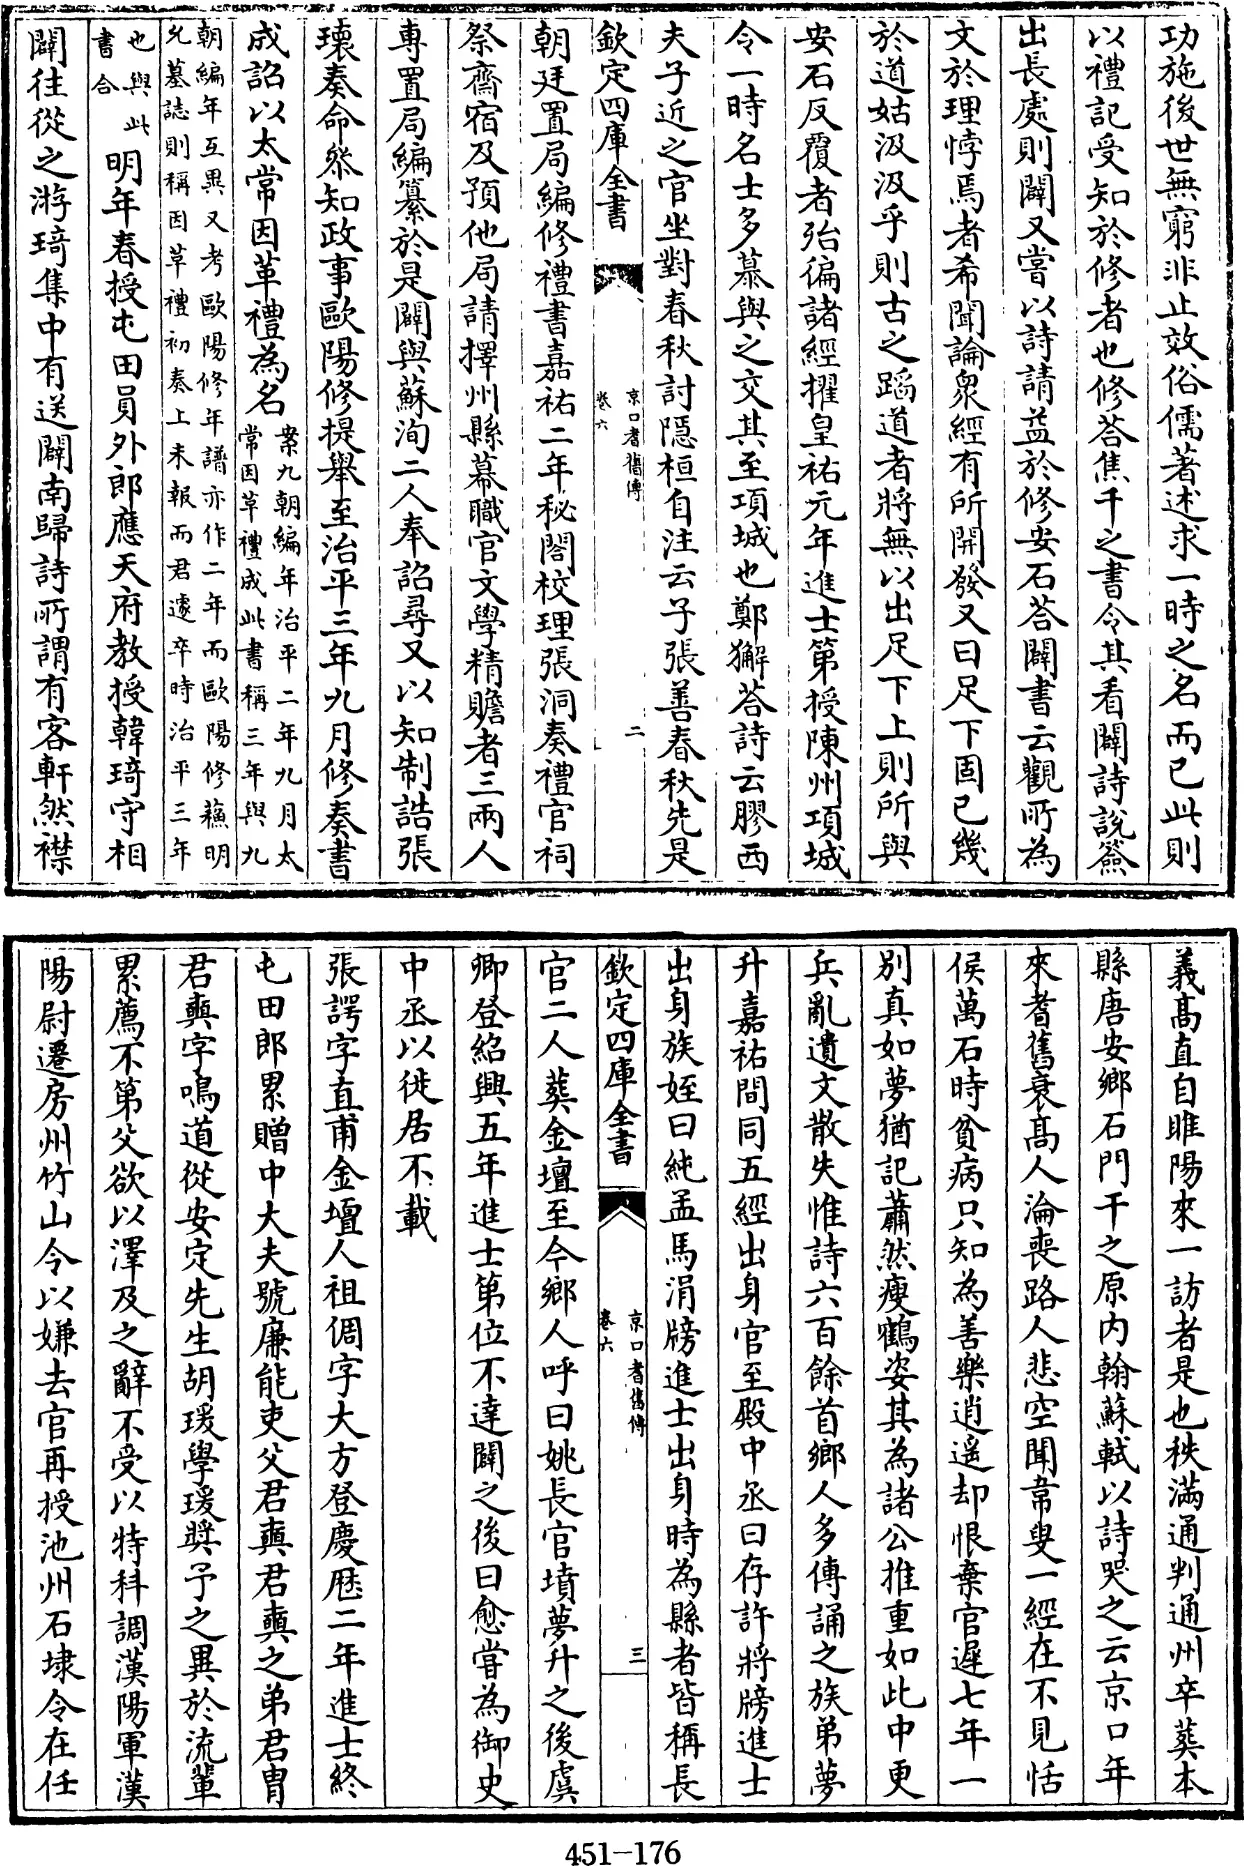 功施後世無窮非止效俗儒著述求一時之名而已此則
以禮記受知於修者也修荅焦千之書令其看闢詩說簽
出長處則闢又嘗以詩請益於修安石荅闢書云觀所為
文於理悖焉者希聞論衆經有所開發又曰足下固已幾
於道姑汲汲乎則古之蹈道者將無以出足下上則所與
安石反覆者殆徧諸經擢皇祐元年進士第授陳州項城
令一時名士多慕與之交其至項城也鄭獬荅詩云膠西
夫子近之官坐對春秋討隱桓自注云子張善春秋先是
欽定四庫全書
京口耆舊傳
卷六
二
朝廷置局編修禮書嘉祐二年秘閣校理張洞奏禮官祠
祭齋宿及預他局請擇州縣幕職官文學精贍者三兩人
專置局編纂於是闢與蘇洵二人奉詔尋又以知制誥張
瓌奏命叅知政事歐陽修提舉至治平三年九月修奏書
成詔以太常因革禮為名
案九朝編年治平二年九月太
常因草禮成此書稱三年與九
朝編年互異又考歐陽修年譜亦作二年而歐陽修蘓明
允墓誌則稱因草禮初奏上未報而君遽卒時治平三年
也與此
書合
明年春授屯田員外郎應天府教授韓琦守相
闢往從之游琦集中有送闢南歸詩所謂有客軒然襟
義髙直自睢陽來一訪者是也秩滿通判通州卒葬本
縣唐安鄉石門干之原内翰蘇軾以詩哭之云京口年
來耆舊衰髙人淪喪路人悲空聞韋叟一經在不見恬
侯萬石時貧病只知為善樂逍遥却恨棄官遲七年一
别真如夢猶記蕭然瘦鶴姿其為諸公推重如此中更
兵亂遺文散失惟詩六百餘首鄉人多傳誦之族弟夢
升嘉祐間同五經出身官至殿中丞曰存許將牓進士
出身族姪曰純孟馬涓牓進士出身時為縣者皆稱長
欽定四庫全書
京口耆舊傳
卷六
三
官二人葬金壇至今鄉人呼曰姚長官墳夢升之後虞
卿登紹興五年進士第位不達闢之後曰愈嘗為御史
中丞以徙居不載
張諤字直甫金壇人祖倜字大方登慶厯二年進士終
屯田郎累贈中大夫號廉能吏父君奭君奭之弟君胄
君奭字鳴道從安定先生胡瑗學瑗奬予之異於流輩
累薦不第父欲以澤及之辭不受以特科調漢陽軍漢
陽尉遷房州竹山令以嫌去官再授池州石埭令在任
451-176